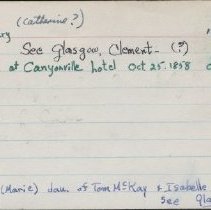 (Catherine?)
ry
See Glasgow, Clement - (?)
at Canyonville hotel Oct 25. 1858
(Marie) dau. of Tom McKay & Isabelle
See Gla